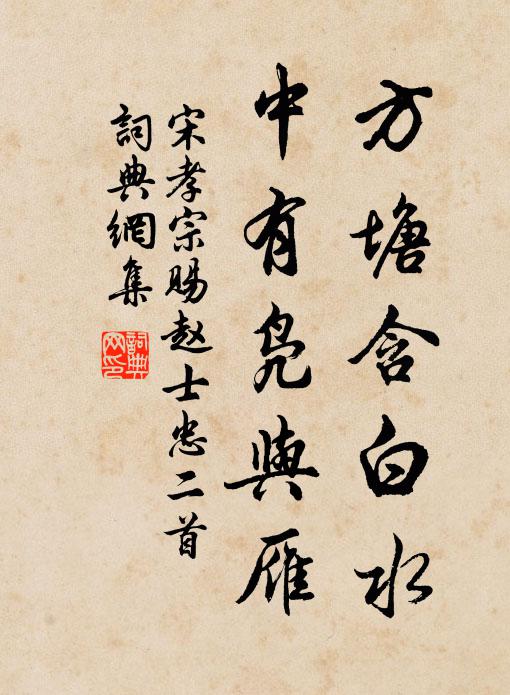 方塘含白水
中有鳧與雁
宋孝宗賜赵士忠二首
詞典網集
詞典网印